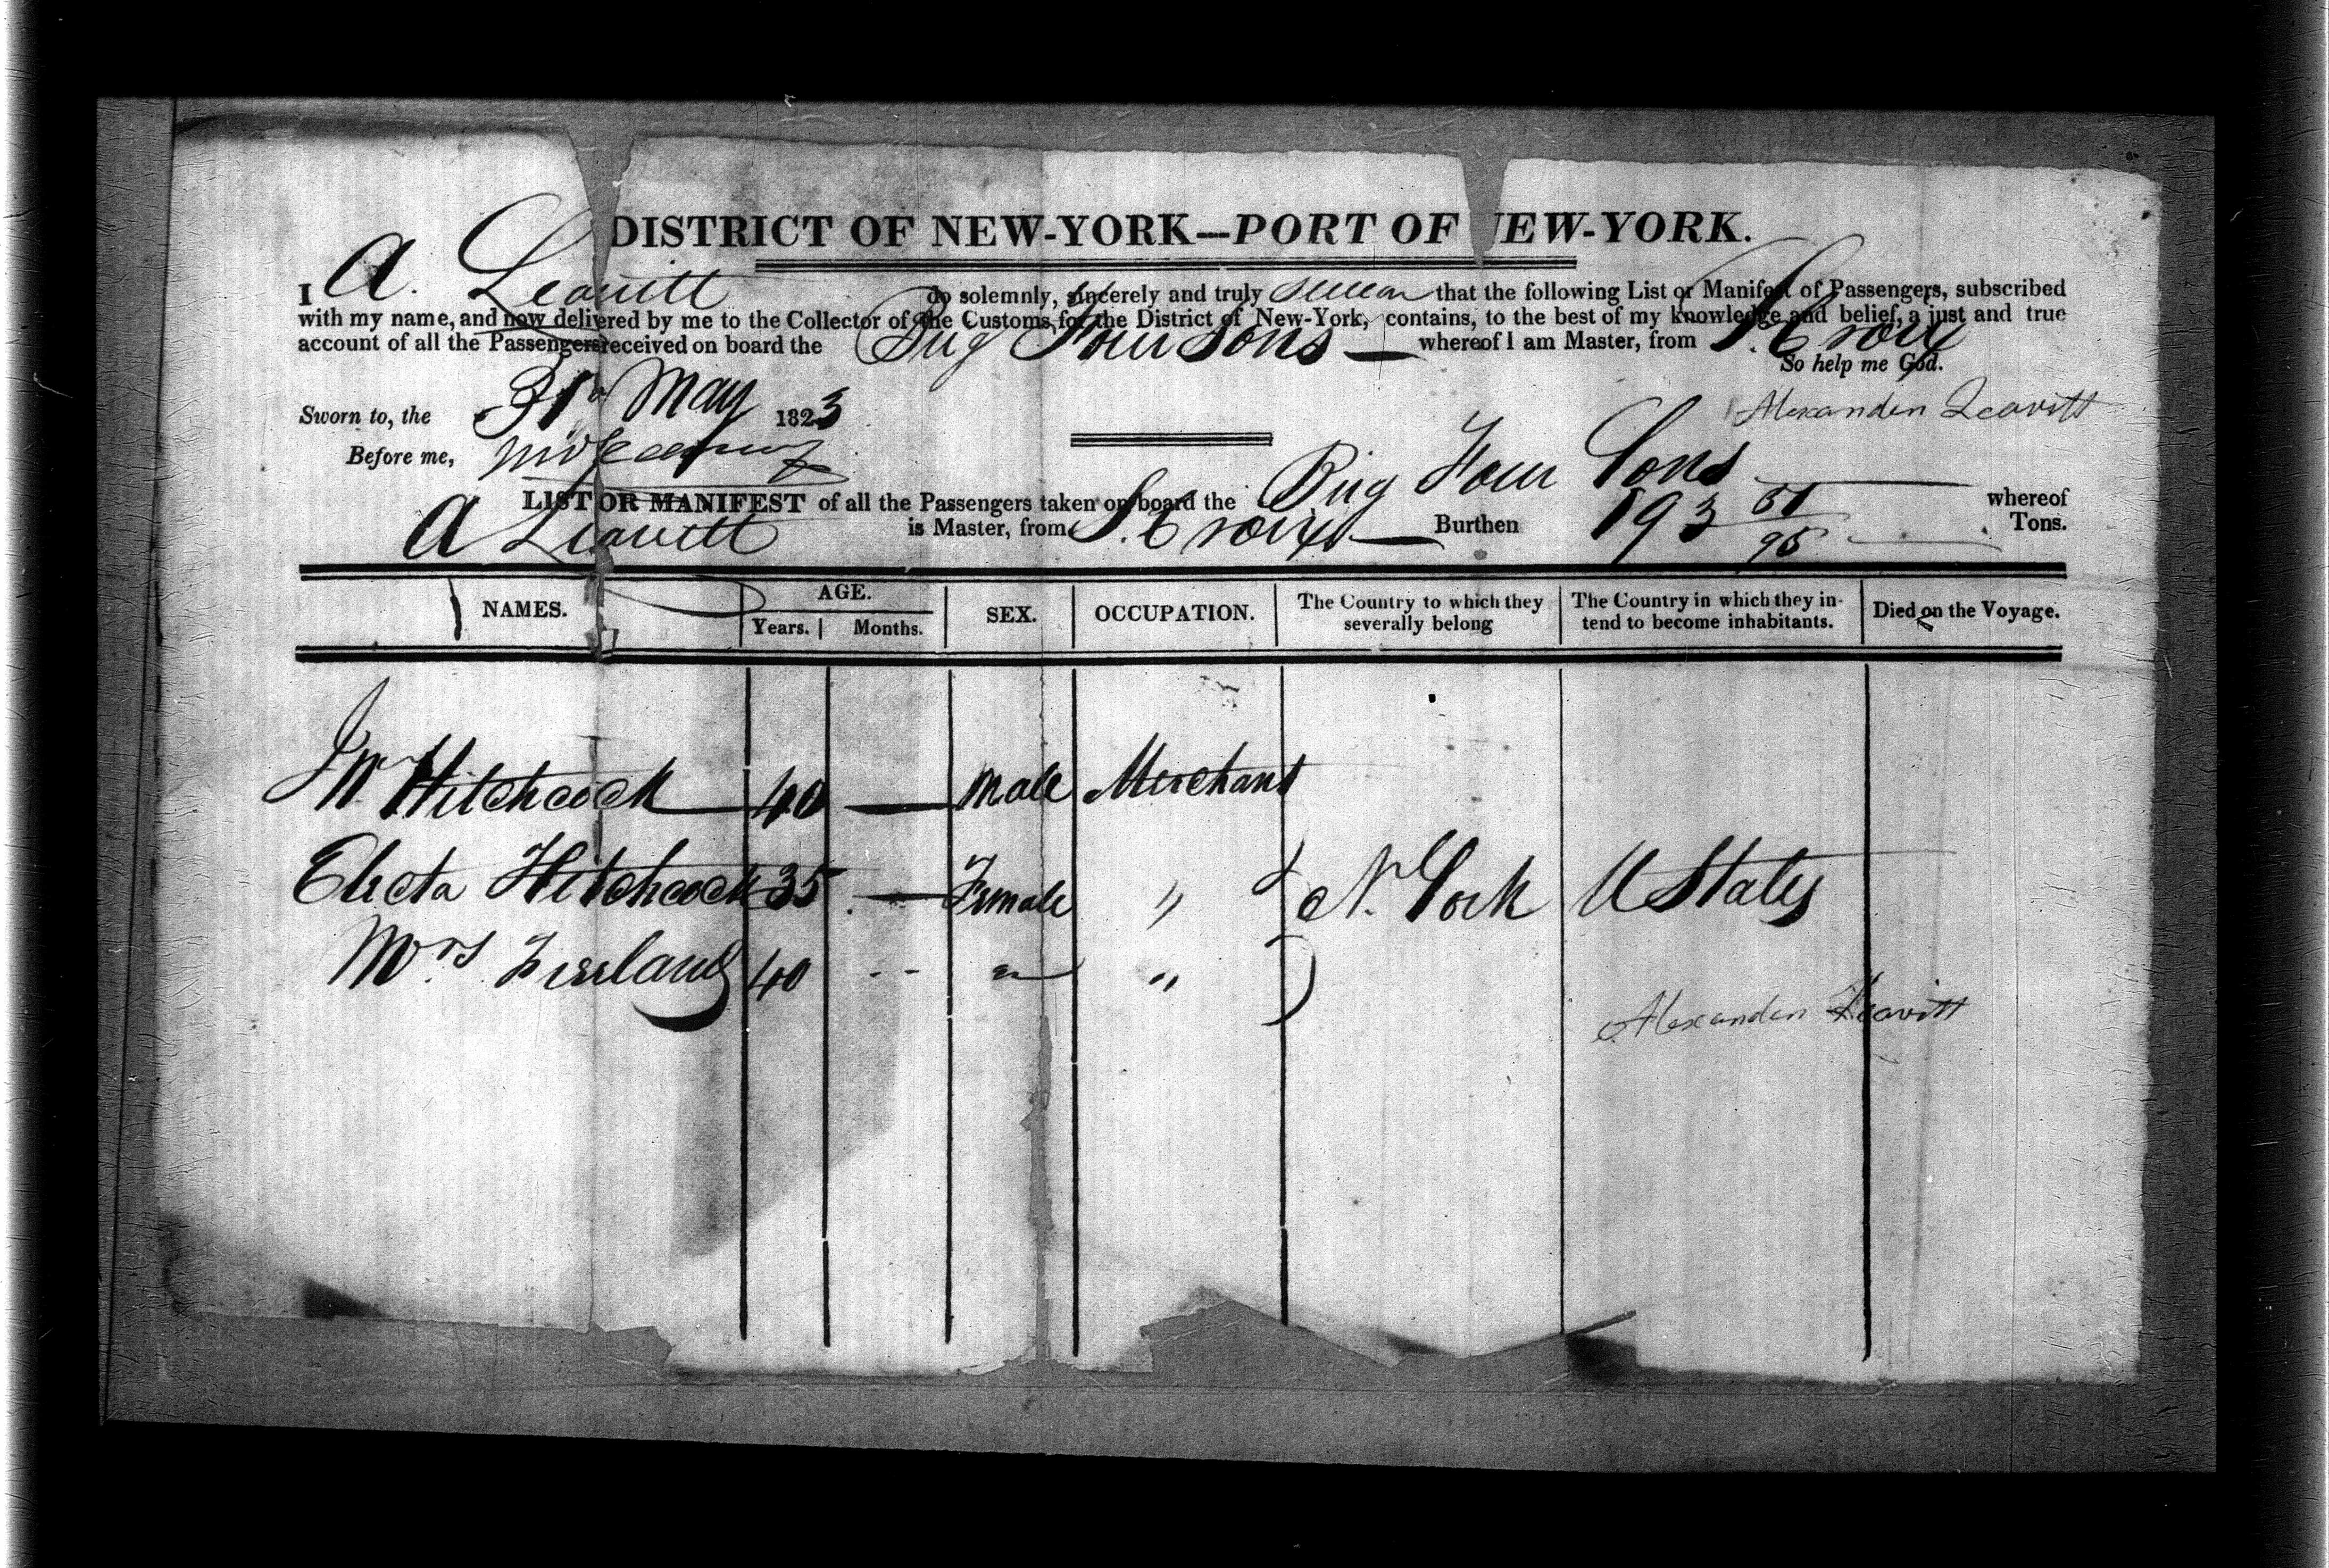 DISTRICT OF NEW-YORK—PORT OF NEW-YORK.
I A. Leavitt do solemnly, sincerely and truly swear that the following List or Manifest of Passengers, subscribed
with my name, and now delivered by me to the Collector of the Customs, for the District of New-York, contains, to the best of my knowledge and belief, a just and true
account of all the Passengers received on board the Brig Four Sons — whereof I am Master, from S. Croix
So help me God.
Sworn to, the 31st May 1823
Alexander Leavitt
Before me,
LIST OR MANIFEST of all the Passengers taken on board the Brig Four Sons whereof
A Leavitt is Master, from S. Croix — Burthen 193 51/95 Tons.
NAMES. AGE. Years. Months. SEX. OCCUPATION. The Country to which they severally belong The Country in which they intend to become inhabitants. Died on the Voyage.
Hitchcock 40 — Male Merchant
Electa Hitchcock 35 — Female " N. York U States
Mrs. 40 - - " "
Alexander Leavitt